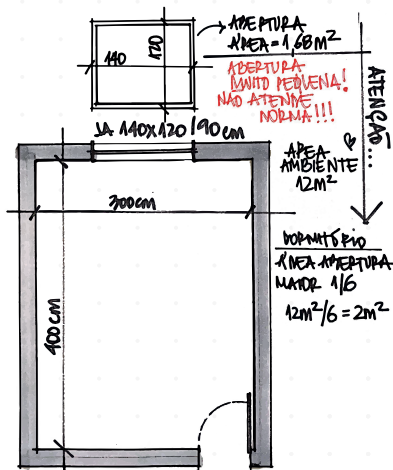 ABERTURA
ÁREA = 1,68m²
140
120
ABERTURA
MUITO PEQUENA!
NÃO ATENDE
NORMA!!!
ATENÇÃO...
JA 140X120/90cm
ÁREA
AMBIENTE
12m²
300cm
400cm
DORMITÓRIO
ÁREA ABERTURA
MAIOR 1/6
12m²/6 = 2m²